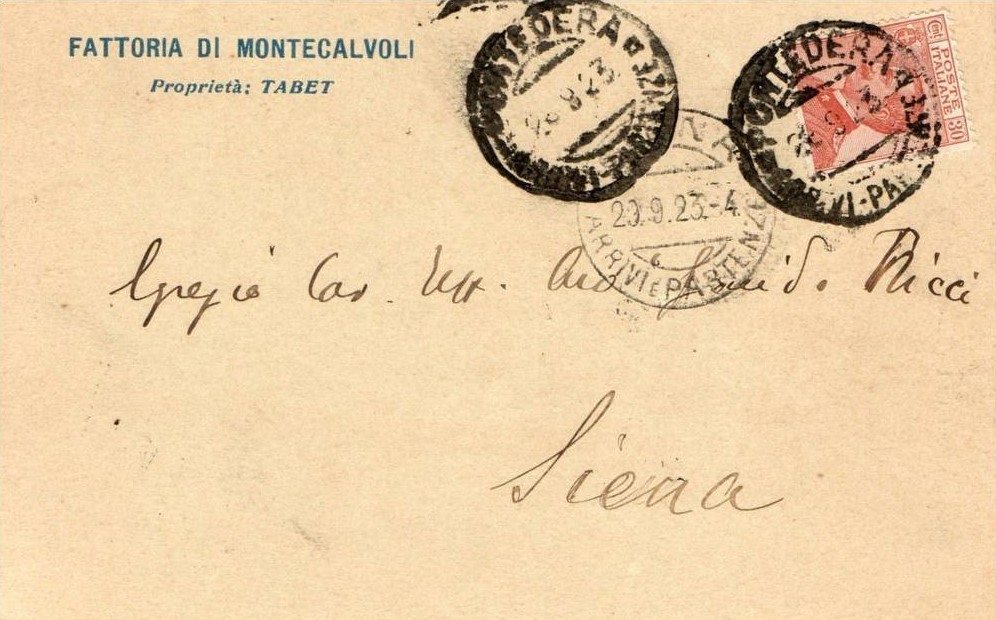 FATTORIA DI MONTECALVOLI
Proprietà: TABET
PONTEDERA
8 23
ARRIVI-PARTENZE
PONTEDERA
ARRIVI-PAR
POSTE ITALIANE 30
20.9.23.-4
ARRIVI E PARTENZE
Egregio Cav. Uff. Guido Ricci
Siena